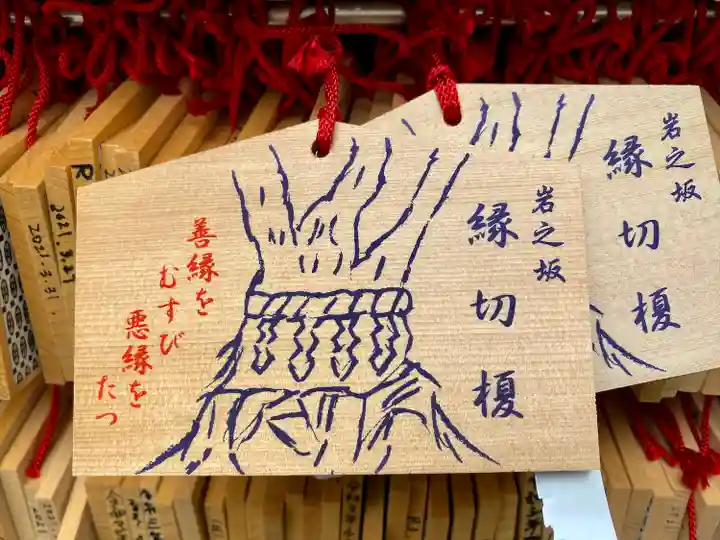 岩之坂
縁切榎
善縁を
むすび
悪縁を
たつ
岩之坂
縁切榎
2021.3.27
2021.3.31
2021